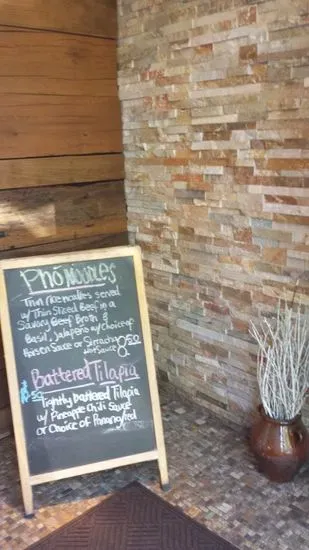 Phở Noodles
Thin rice noodles served
w/ Thin Sliced Beef in a
Savory Beef Broth &
Basil, Jalapeño w/ choice of
Hoisen Sauce or Sirracha
Hot Sauce 8.50
Battered Tilapia
8.50 Lightly battered Tilapia
w/ Pineapple Chili Sauce
or Choice of Panang/red